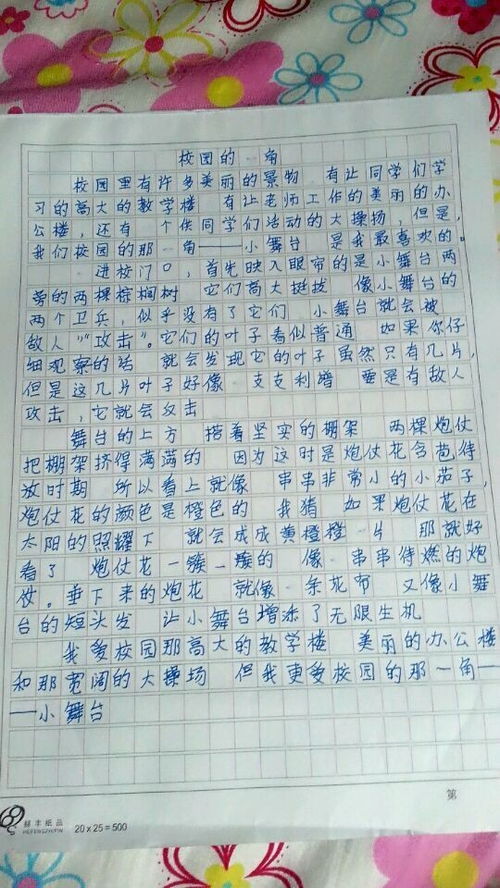 校园的 一角
校园里有许多美丽的景物 有让同学们学
习的高大的教学楼 有让老师工作的美丽的办
公楼，还有 个供同学们活动的大操扬，但是，
我们校园的那一角——小舞台 是我最喜欢的。
进校门口，首先映入眼帘的是小舞台两
旁的两棵棕榈树 它们高大挺拔 像小舞台的
两个卫兵，似乎没有了它们 小舞台就会被
敌人“攻击”。它们的叶子看似普通 如果你仔
细观察的话 就会发现它的叶子虽然只有几片，
但是这几片叶子好像 支支利 是有敌人
攻击，它就会攻击
舞台的上方 搭着坚实的棚架 两棵炮仗
把棚架挤得满满的 因为这时是炮仗花含苞待
放时期 所以看上就像 串串非常小的小茄子，
炮仗花的颜色是橙色的 我猜 如果炮仗花在
太阳的照耀下 就会成成黄橙橙一片 那就好
看了 炮仗花一簇一簇的 像一串串待燃的炮
仗。垂下来的炮花 就像一条花布 又像小舞
台的短头发 让小舞台增添了无限生机
我爱校园那高大的教学楼 美丽的办公楼
和那宽阔的大操场 但我更爱校园的那一角—
—小舞台
第
20×25=500